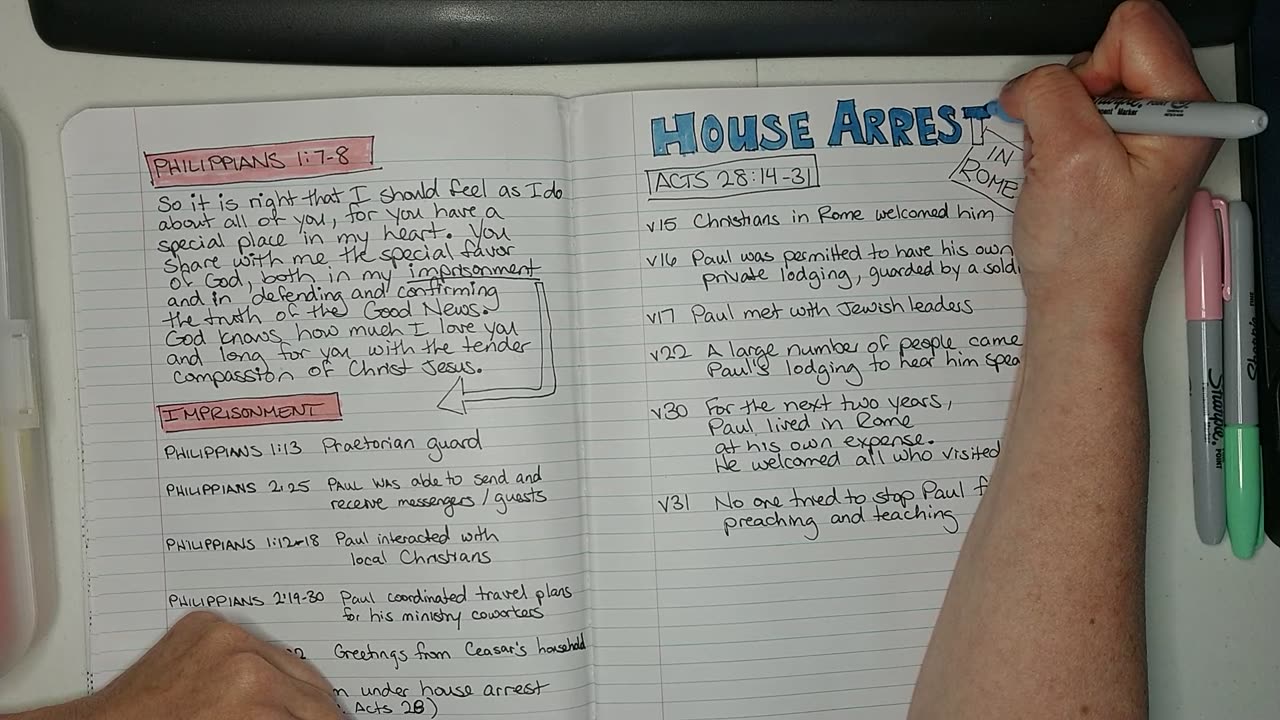 PHILIPPIANS 1:7-8
So it is right that I should feel as I do
about all of you, for you have a
special place in my heart. You
share with me the special favor
of God, both in my imprisonment
and in defending and confirming
the truth of the Good News.
God knows how much I love you
and long for you with the tender
compassion of Christ Jesus.
IMPRISONMENT
PHILIPPIANS 1:13 Praetorian guard
PHILIPPIANS 2:25 PAUL WAS able to send and
receive messengers / guests
PHILIPPIANS 1:12-18 Paul interacted with
local Christians
PHILIPPIANS 2:19-30 Paul coordinated travel plans
for his ministry coworters
Greetings from Ceasar's household
under house arrest
Acts 28)
HOUSE ARREST
IN
ROME
ACTS 28:14-31
v15 Christians in Rome welcomed him
v16 Paul was permitted to have his own
private lodging, guarded by a
v17 Paul met with Jewish leaders
v22 A large number of people came
Paul's lodging to hear him
v30 For the next two years,
Paul lived in Rome
at his own expense.
He welcomed all who visited
v31 No one tried to stop Paul
preaching and teaching
Sharpie
Sharpie